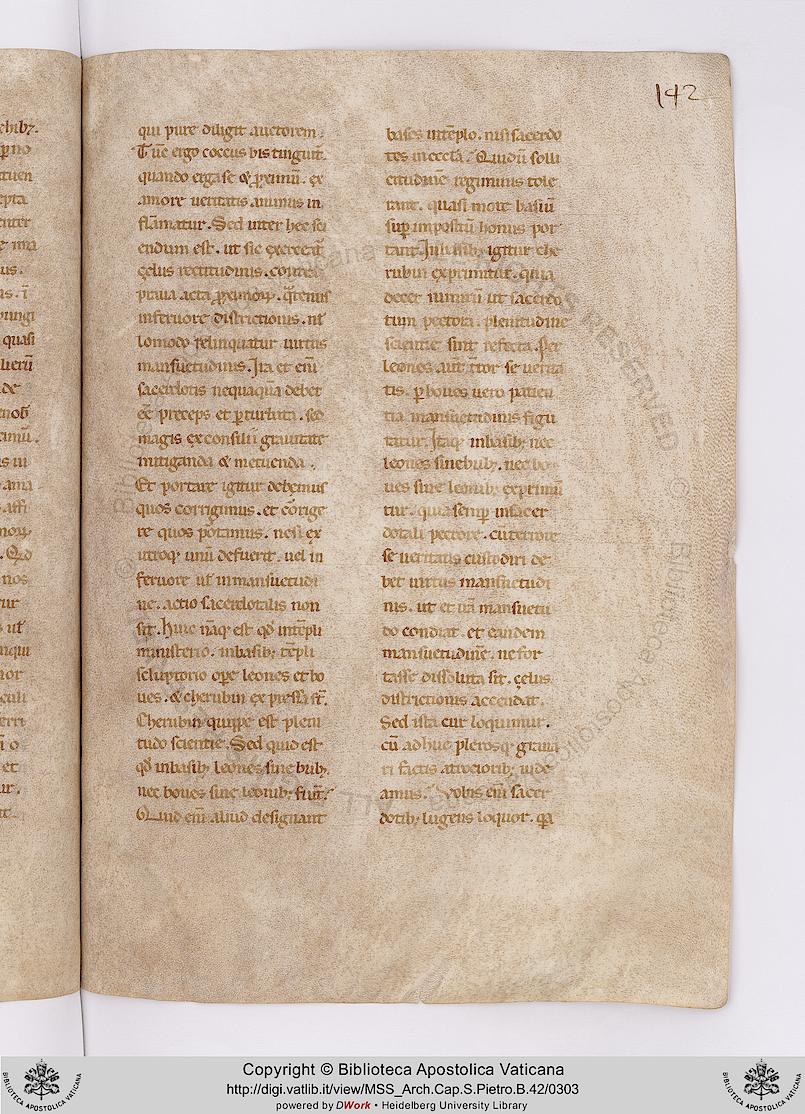 142
qui pure diligit auctorem.
Tūc ergo coccus bis tinguit̄.
quando erga se & ꝓximū. ex
amore ueritatis animus in
flāmatur. Sed inter hec sci
endum est. ut sic exerceat̄
çelus rectitudinis. contra
praua acta ꝓximoꝝ. q̄tenus
inferuore districtionis. nl̄
lomodo relinquatur uirtus
mansuetudinis. Ira et eni̅
sacerdotis nequaquā debet
eē preceps et ꝑturbata. sed
magis ex consilii grauitate
mitiganda & metuenda.
Et portare igitur debemus
quos corrigimus. et cōrige
re quos portamus. nesi ex
utroqꝫ unū defuerit. uel in
feruore ul̄ in mansuetudi
ne. actio sacerdotalis non
sit. Hinc nāqꝫ est qd̄ intēpli
ministerio. inbasibꝫ tēpli
sculptorio oꝑe leones et bo
ues. & cherubin expressa st̄.
Cherubin quippe est pleni
tudo scientie. Sed quid est
qd̄ inbasibꝫ leones sine bubꝫ.
nec boues sine leonibꝫ fiunt̄.
Quid eni̅ aliud designant
bases intēplo. nisi sacerdo
tes in eccla. Qui dū solli
citudinē regiminis tole
rant. quasi more basiū
suꝑ impositū honus por
tant. In basibꝫ igitur che
rubin exprimitur. quia
decet nimirū ut sacerdo
tum pectora. plenitudine
scientie sint refecta. Per
leones aut̄ t̄ror se uerita
tis. ꝑ boues uero patien
tia mansuetudinis figu
ratur. Itaqꝫ inbasibꝫ nec
leones sinebubꝫ. nec bo
ues sine leonibꝫ exprimū
tur. quia semꝑ insacer
dotali pectore. cū terrore
se ueritatis custodiri de
bet uirtus mansuetudi
nis. ut et irā mansuetu
do condiat. et eandem
mansuetudinē. ne for
tasse dissoluta sit. çelus
districtionis accendat.
Sed ista cur loquimur.
cū adhuc plerosqꝫ graua
ri factis atrocioribꝫ uide
amus. Vobis eni̅ sacer
dotibꝫ lugens loquor. qa
Copyright © Biblioteca Apostolica Vaticana
http://digi.vatlib.it/view/MSS_Arch.Cap.S.Pietro.B.42/0303
powered by DWork • Heidelberg University Library